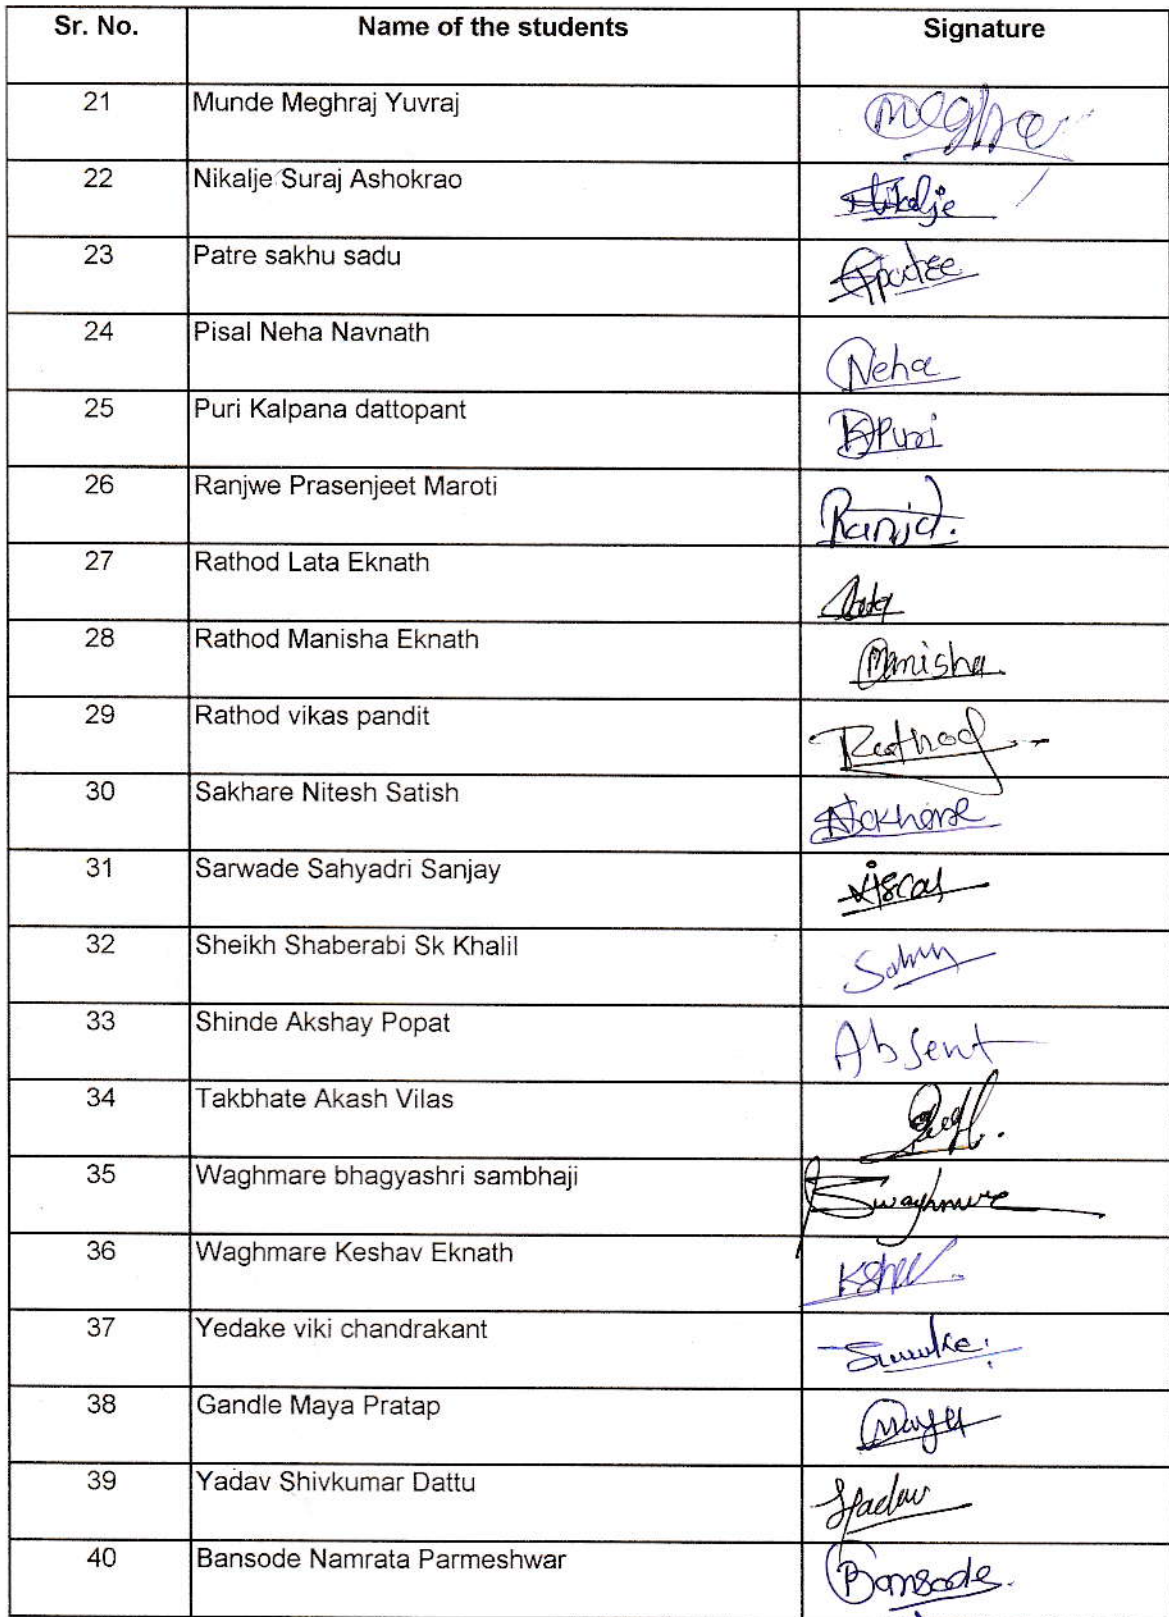 Sr. No. Name of the students Signature
21 Munde Meghraj Yuvraj
22 Nikalje Suraj Ashokrao Nikalje
23 Patre sakhu sadu
24 Pisal Neha Navnath Neha
25 Puri Kalpana dattopant KPuri
26 Ranjwe Prasenjeet Maroti
27 Rathod Lata Eknath Lata
28 Rathod Manisha Eknath Manisha
29 Rathod vikas pandit Rathod
30 Sakhare Nitesh Satish
31 Sarwade Sahyadri Sanjay
32 Sheikh Shaberabi Sk Khalil
33 Shinde Akshay Popat Absent
34 Takbhate Akash Vilas
35 Waghmare bhagyashri sambhaji
36 Waghmare Keshav Eknath
37 Yedake viki chandrakant
38 Gandle Maya Pratap Maya
39 Yadav Shivkumar Dattu
40 Bansode Namrata Parmeshwar Bansode